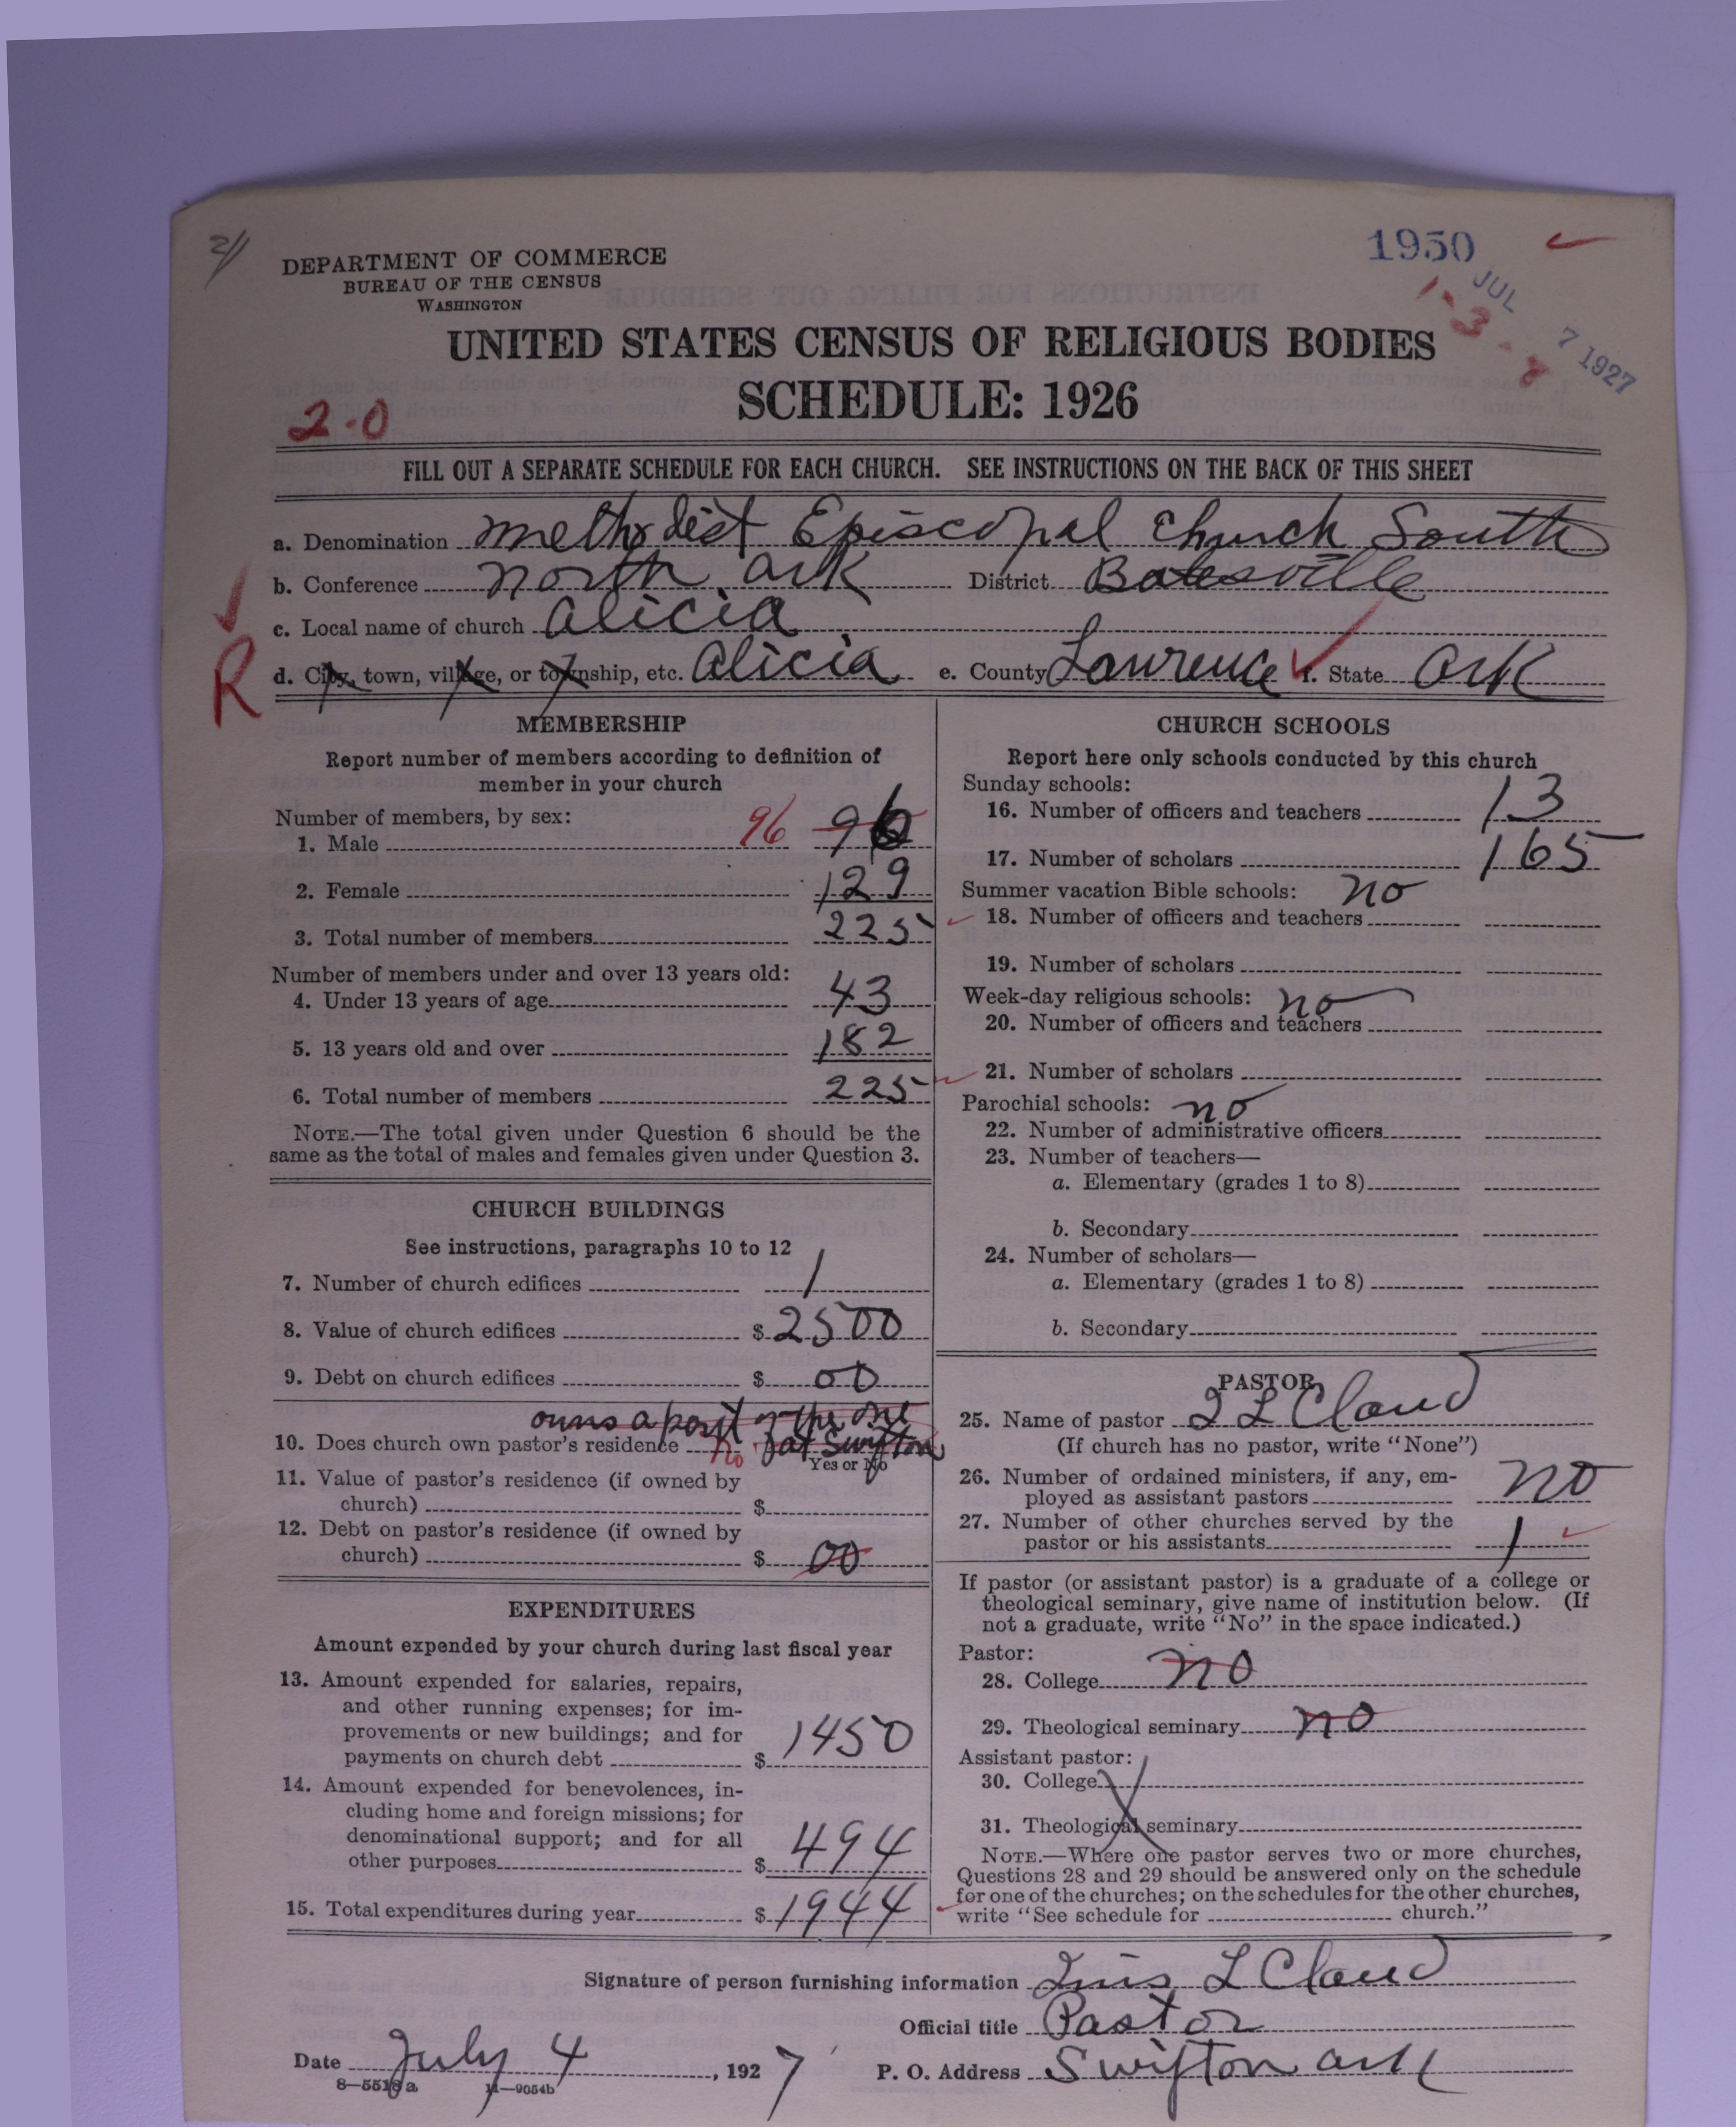 21
DEPARTMENT OF COMMERCE
BUREAU OF THE CENSUS
WASHINGTON
1950
JUL 7 1927
1-3-8
UNITED STATES CENSUS OF RELIGIOUS BODIES
SCHEDULE: 1926
2-0
FILL OUT A SEPARATE SCHEDULE FOR EACH CHURCH. SEE INSTRUCTIONS ON THE BACK OF THIS SHEET
a. Denomination Methodist Episcopal Church South
b. Conference North Ark District Batesville
c. Local name of church Alicia
R
d. City, town, village, or township, etc. Alicia e. County Lawrence f. State Ark
MEMBERSHIP
Report number of members according to definition of
member in your church
Number of members, by sex:
1. Male 96 96
2. Female 129
3. Total number of members 225
Number of members under and over 13 years old:
4. Under 13 years of age 43
5. 13 years old and over 182
6. Total number of members 225
NOTE.—The total given under Question 6 should be the
same as the total of males and females given under Question 3.
CHURCH BUILDINGS
See instructions, paragraphs 10 to 12
7. Number of church edifices 1
8. Value of church edifices $ 2500
9. Debt on church edifices $ 00
owns a part of the one
10. Does church own pastor's residence No at Swifton
Yes or No
11. Value of pastor's residence (if owned by
church) $
12. Debt on pastor's residence (if owned by
church) $ 00
EXPENDITURES
Amount expended by your church during last fiscal year
13. Amount expended for salaries, repairs,
and other running expenses; for im-
provements or new buildings; and for
payments on church debt $ 1450
14. Amount expended for benevolences, in-
cluding home and foreign missions; for
denominational support; and for all
other purposes $ 494
15. Total expenditures during year $ 1944
CHURCH SCHOOLS
Report here only schools conducted by this church
Sunday schools:
16. Number of officers and teachers 13
17. Number of scholars 165
Summer vacation Bible schools: no
18. Number of officers and teachers
19. Number of scholars
Week-day religious schools: no
20. Number of officers and teachers
21. Number of scholars
Parochial schools: no
22. Number of administrative officers
23. Number of teachers—
a. Elementary (grades 1 to 8)
b. Secondary
24. Number of scholars—
a. Elementary (grades 1 to 8)
b. Secondary
PASTOR
25. Name of pastor L Claud
(If church has no pastor, write "None")
26. Number of ordained ministers, if any, em-
ployed as assistant pastors no
27. Number of other churches served by the
pastor or his assistants 1
If pastor (or assistant pastor) is a graduate of a college or
theological seminary, give name of institution below. (If
not a graduate, write "No" in the space indicated.)
Pastor:
28. College no
29. Theological seminary no
Assistant pastor:
30. College
31. Theological seminary
NOTE.—Where one pastor serves two or more churches,
Questions 28 and 29 should be answered only on the schedule
for one of the churches; on the schedules for the other churches,
write "See schedule for church."
Signature of person furnishing information L Claud
Official title Pastor
Date July 4, 1927 P. O. Address Swifton Ark
8—5518 a 11—9054b